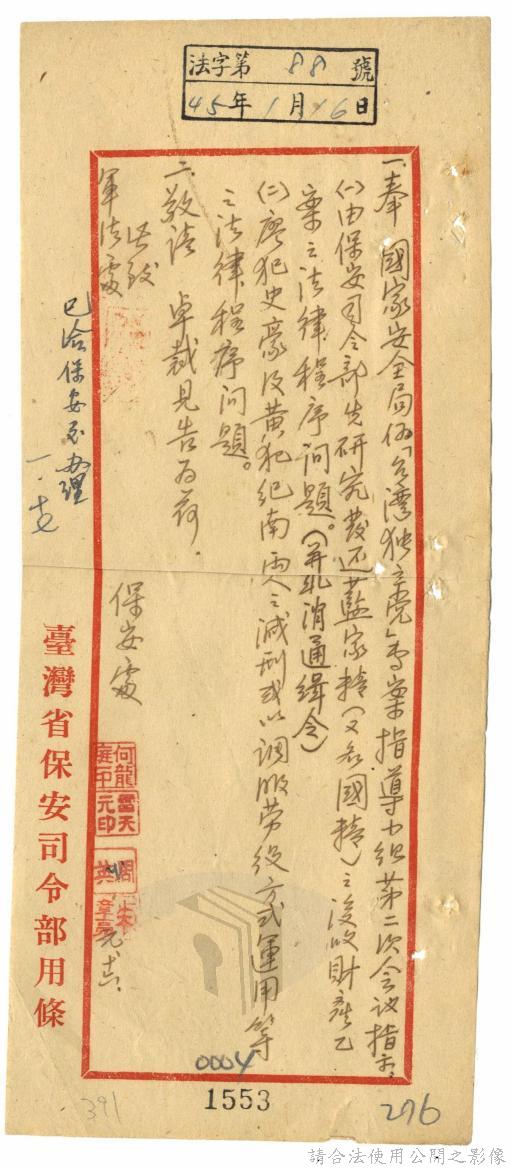 法字第88號
45年1月16日
一、奉 國家安全局「台湾独立党」專案指導小組第二次会议指示:
(一)由保安司令部先研究發还藍家精(又名國精)之沒收財產乙
案之法律程序问題。(并取消通緝令)
(二)廖犯史豪及黄犯纪南両人之減刑或以調服劳役方式運用等
之法律程序问題。
二、敬请 卓裁見告為荷.
此致
軍法處
保安處
何龍庭印
雷天元印
周
已洽保安處办理
臺灣省保安司令部用條
0004
1553
391
276
請合法使用公開之影像